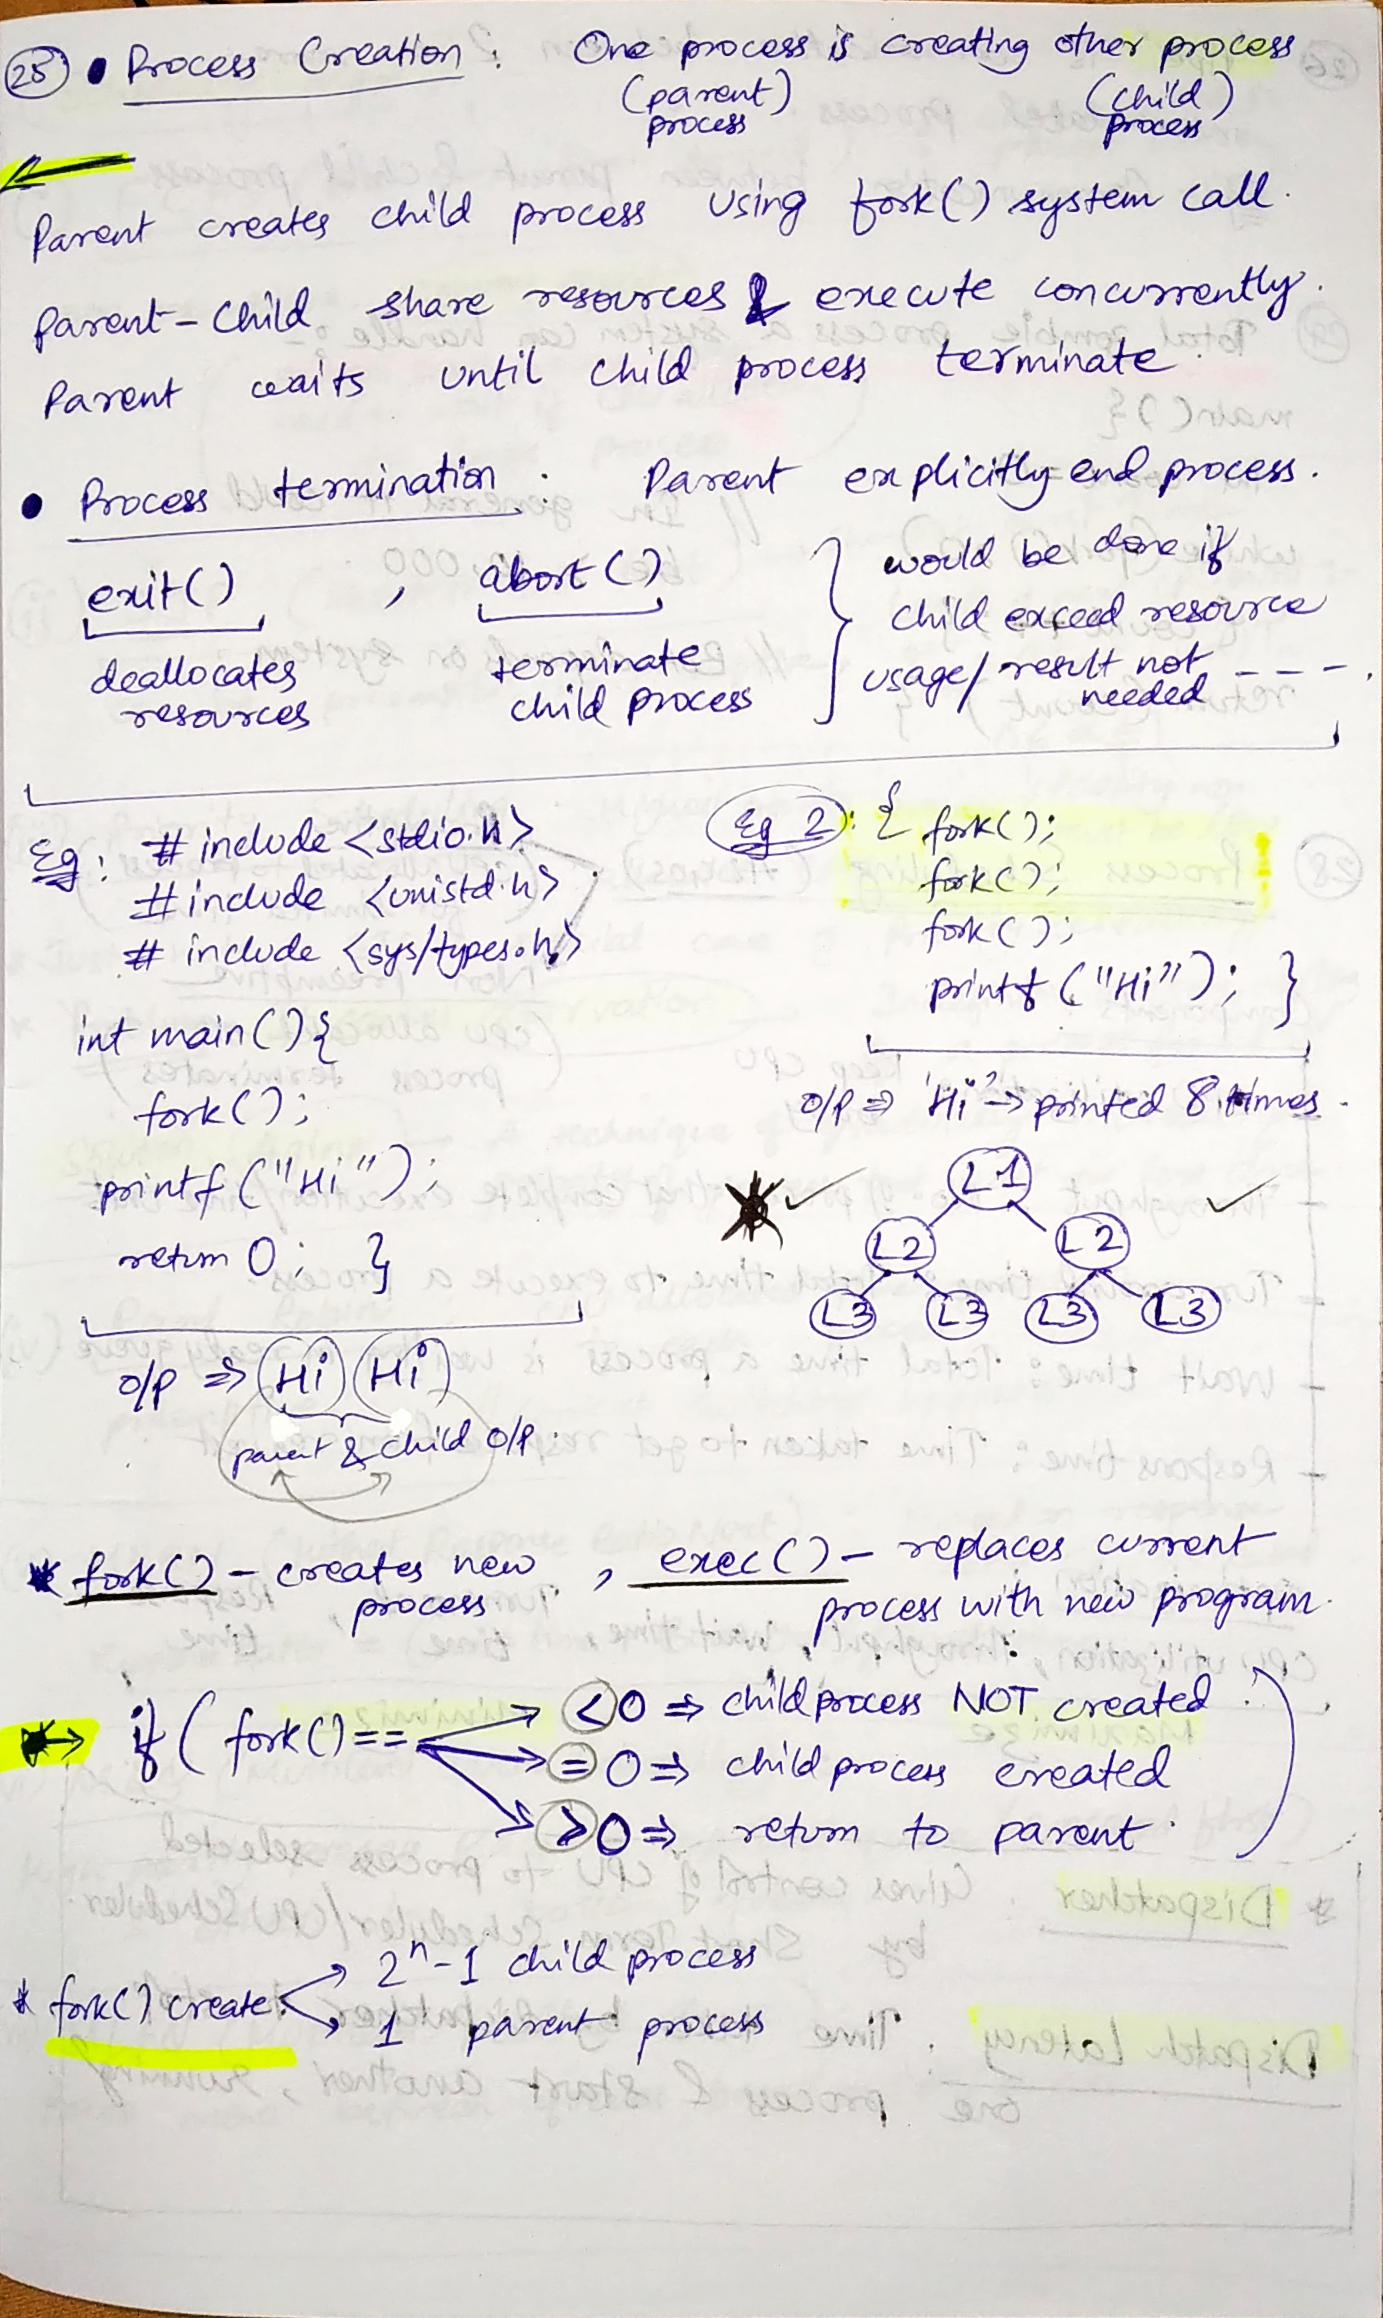 25 • Process Creation : One process is creating other process
(parent) process (child) process
Parent creates child process using fork() system call.
Parent - Child share resources & execute concurrently.
Parent waits until child process terminate.
• Process termination : Parent explicitly end process.
exit() , abort() } would be done if
child exceed resource
deallocates resources terminate child process usage/ result not needed - - - .
Eg : # include <stdio.h>
# include <unistd.h>
# include <sys/types.h>
int main() {
fork();
printf ("Hi");
return 0; }
o/p ⇒ Hi Hi
parent & child o/p.
Eg 2 : { fork();
fork();
fork();
printf ("Hi"); }
o/p ⇒ 'Hi' → printed 8 times.
L1
L2 L2
L3 L3 L3 L3
* fork() - creates new process , exec() - replaces current
process with new program.
* → if ( fork() == <0 ⇒ child process NOT created.
=0 ⇒ child process created
>0 ⇒ return to parent. )
* fork() create 2ⁿ-1 child process
1 parent process